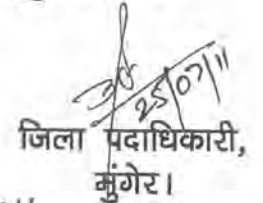 25/07/11
जिला पदाधिकारी,
मुंगेर।